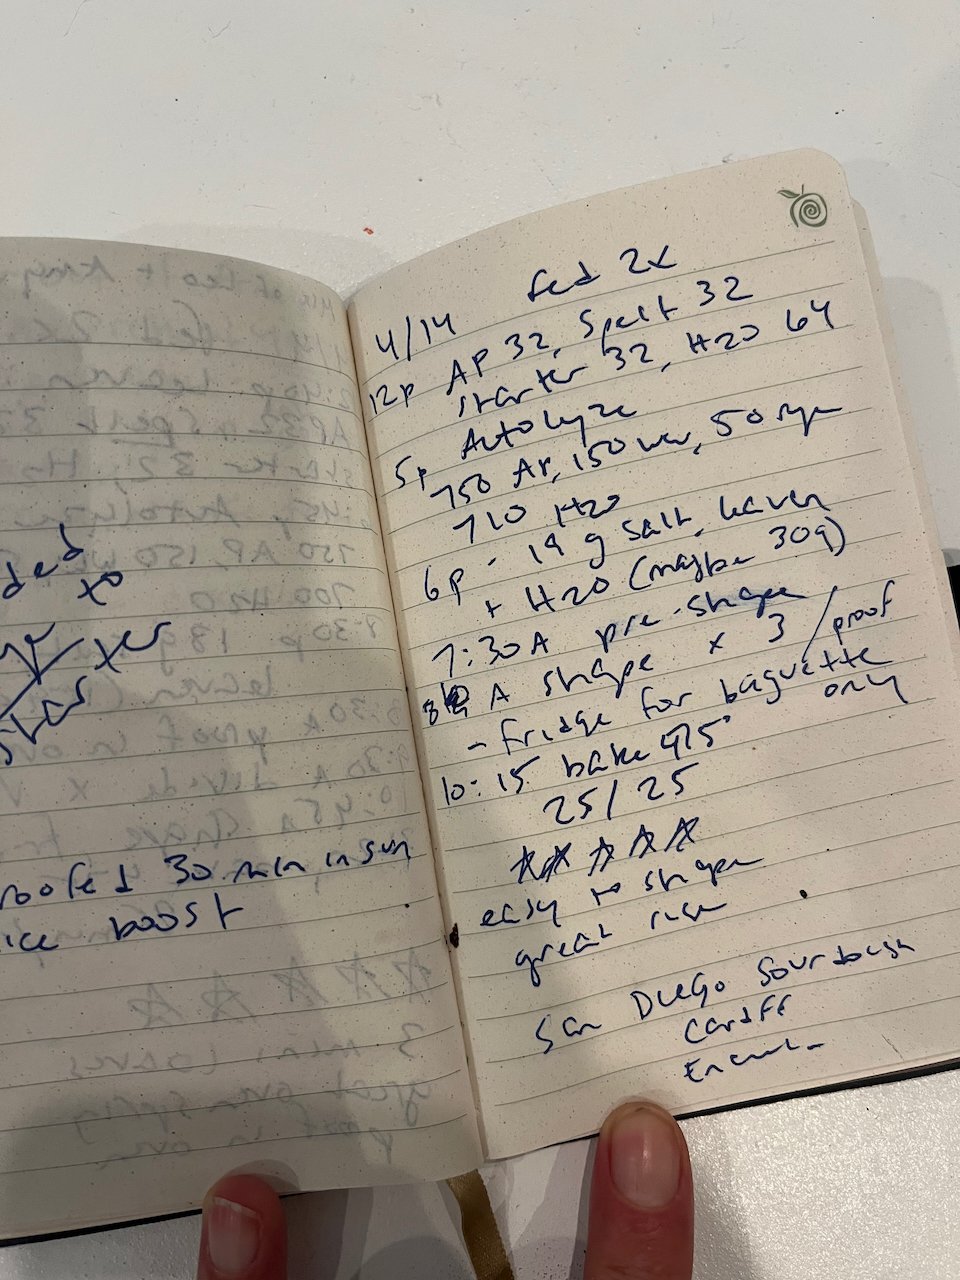 ded
to
xer
proofed 30 min in sun
nice boost
fed 2x
4/14
12p AP 32, Spelt 32
starter 32, H20 64
5p Autolyze
750 AP, 150 WW, 50 rye
710 H20
6p - 19 g salt, leaven
+ H20 (maybe 30g)
7:30A pre-shape
8 A shape x 3 / proof
- fridge for baguette
only
10:15 bake 475°
25/25
☆☆☆☆☆
easy to shape
great rise
San Diego Sourdough
Cardiff